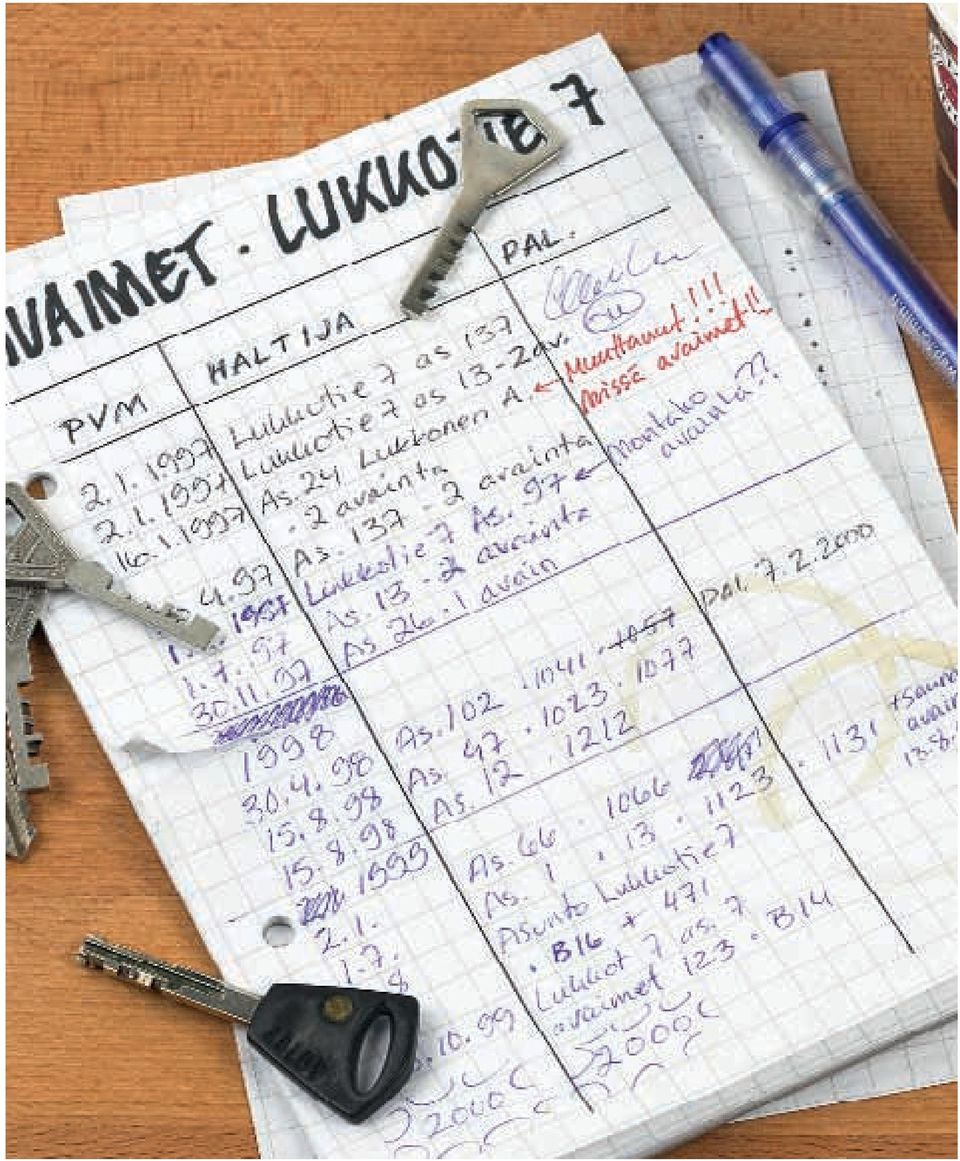 AVAIMET · LUKKOTIE 7
PVM HALTIJA PAL.
2.1.1997 Lukkotie 7 as 137
2.1.1997 Lukkotie 7 as 13 - 2 av.
16.1.1997 As. 24 Lukkonen A. ← Muuttanut!!!
missä avaimet!!
- 2 avainta
4.97 As. 137 - 2 avainta
1997 Lukkotie 7 As. 97 ← Montako
avainta?!
1.7.97 As. 13 - 2 avainta
30.11.97 As 26 · 1 avain
1998
30.4.98 As. 102 · 1041 · 1057 PAL 7.2.2000
15.8.98 As. 47 · 1023 · 1077
15.8.98 As. 12 · 1212
1999
2.1. As. 66 · 1066
1.7. As. 1 · 13 · 1123 · 1131 +sauna
8 Asunto Lukkotie 7
· B16 + 471
10.99 Lukkot 7 as. 7
avaimet 123 · B14
2000
2000